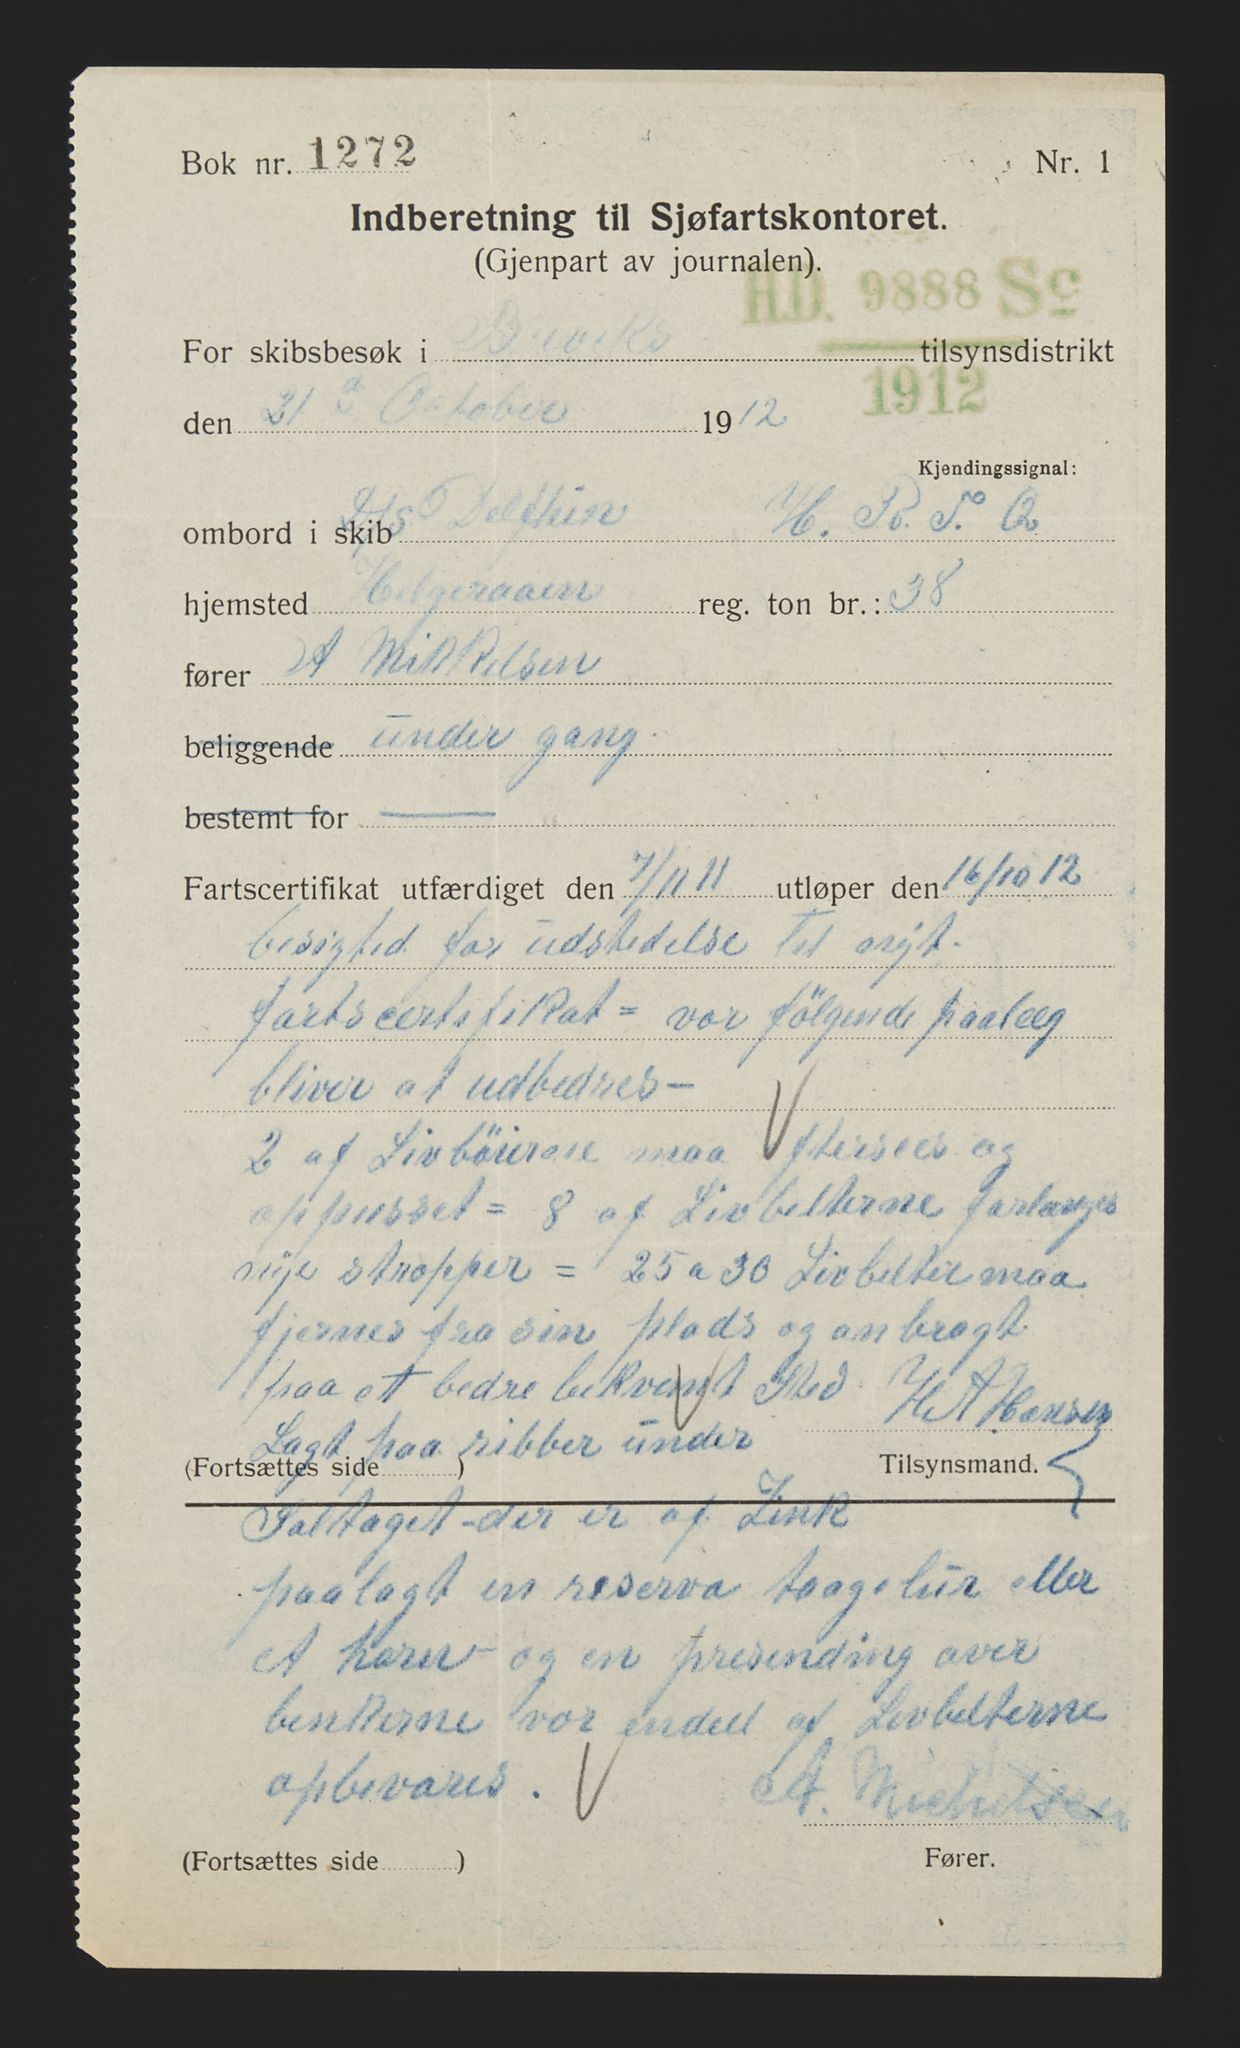 Bok nr. 1272 Nr. 1
Indberetning til Sjøfartskontoret.
(Gjenpart av journalen).
H.D. 9888 Sc
1912
For skibsbesøk i Breviks tilsynsdistrikt
den 21 October 1912
Kjendingssignal:
ombord i skib D/S Delfhin H. R. T. Q
hjemsted Helgeraaen reg. ton br.: 38
fører A Mikkelsen
beliggende under gang
bestemt for —
Fartscertifikat utfærdiget den 7/11 11 utløper den 16/10 12
besigted for udstedelse til nyt
fartscertifikat = vor følgende paalæg
bliver at udbedres –
2 af Livbøierne maa eftersees og
oppusset = 8 af Livbelterne forlanges
nye stropper = 25 a 30 Livbelter maa
fjernes fra sin plads og anbragt
paa et bedre bekvemt Sted
H A Hansen
Lagt paa ribber under
(Fortsættes side ) Tilsynsmand.
Soltaget – der er af Zink
paalagt en reserva taagelur eller
et horn – og en presending over
benkerne vor endell af Livbelterne
opbevares.
A. Michelsen
(Fortsættes side ) Fører.